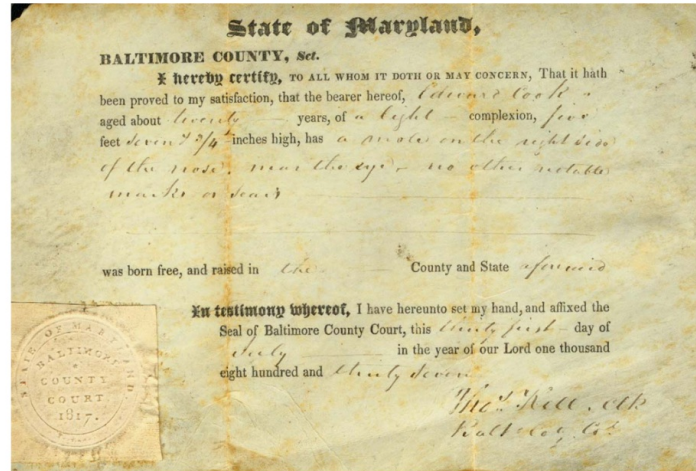 State of Maryland,
BALTIMORE COUNTY, Sct.
I hereby certify, TO ALL WHOM IT DOTH OR MAY CONCERN, That it hath
been proved to my satisfaction, that the bearer hereof, Edward Cook
aged about twenty years, of a light complexion, five
feet seven & 3/4 inches high, has a mole on the right side
of the nose, near the eye – no other notable
marks or scars
was born free, and raised in the County and State aforesaid
In testimony whereof, I have hereunto set my hand, and affixed the
Seal of Baltimore County Court, this thirty first day of
July in the year of our Lord one thousand
eight hundred and thirty seven
Thos. Kell, Clk
Balt Coy Ct.
STATE OF MARYLAND
BALTIMORE
COUNTY
COURT.
1817.